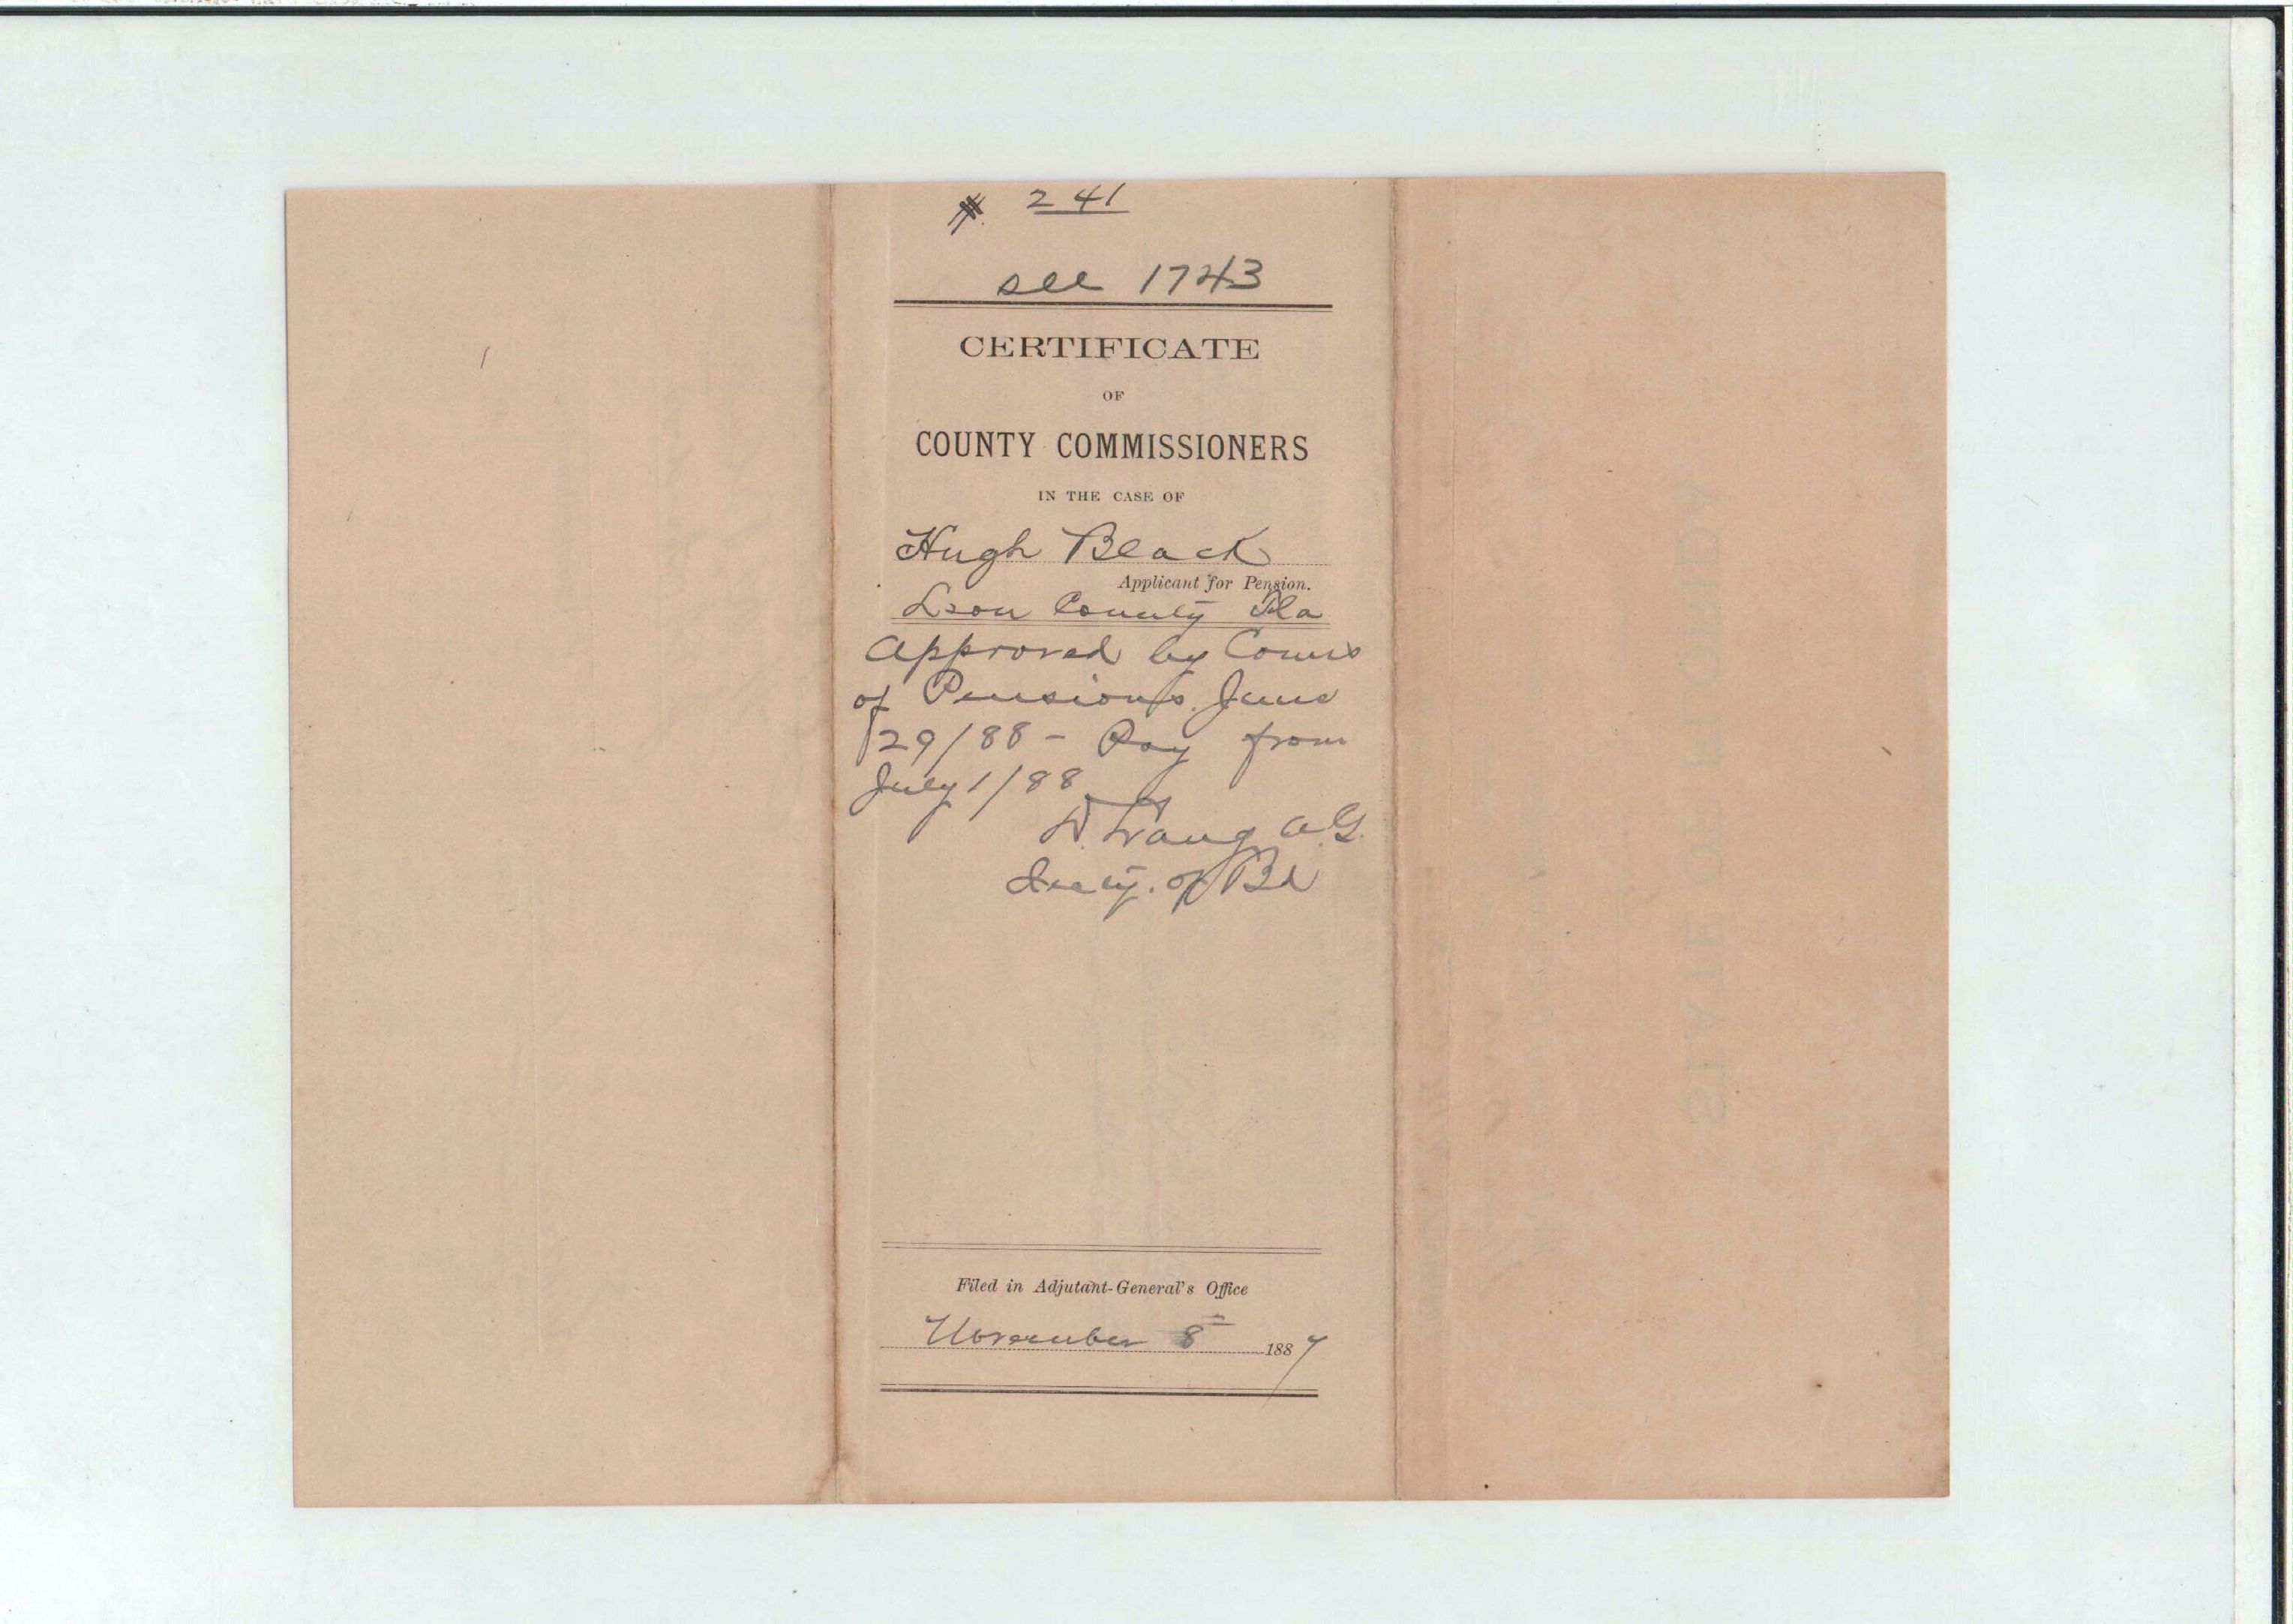 # 241
see 1743
CERTIFICATE
OF
COUNTY COMMISSIONERS
IN THE CASE OF
Hugh Black
Applicant for Pension.
Leon County Fla
Approved by Coms
of Pensions June
29/88 - Pay from
July 1/88
D. Lang A.G.
Secty. of Bd
Filed in Adjutant-General's Office
November 8 1887